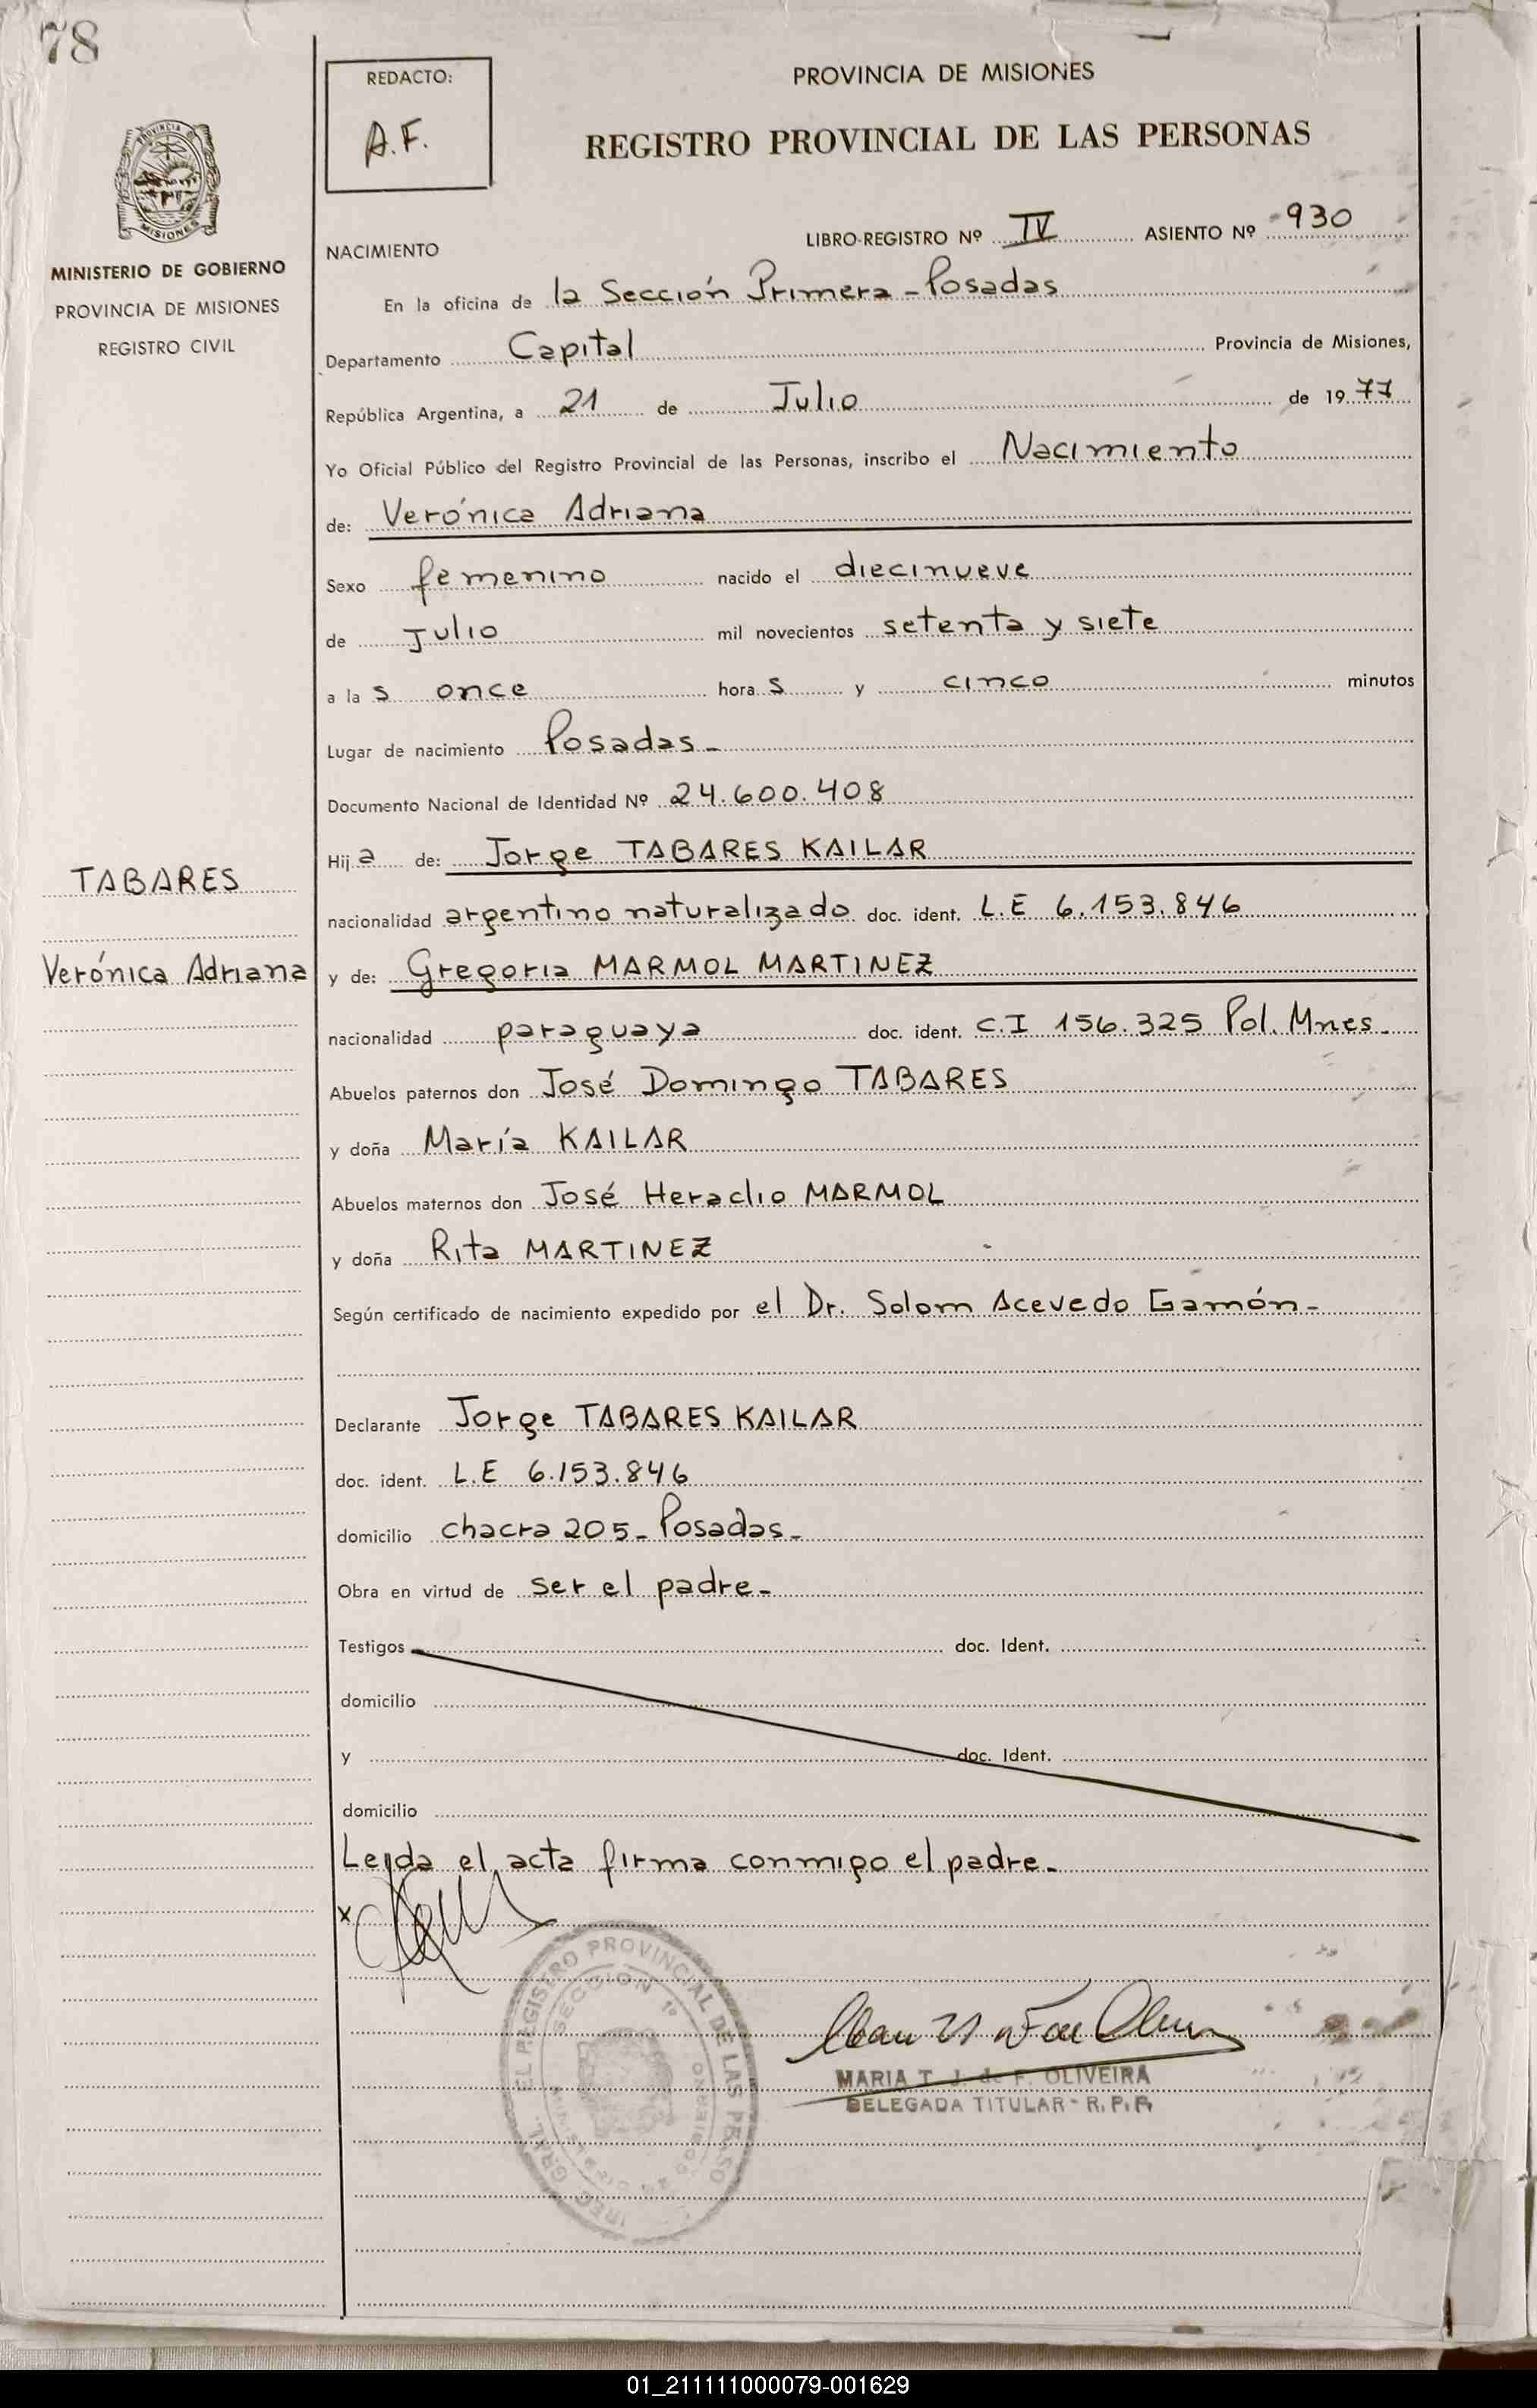 78
REDACTO:
A.F.
PROVINCIA DE MISIONES
REGISTRO PROVINCIAL DE LAS PERSONAS
MISIONES
MINISTERIO DE GOBIERNO
PROVINCIA DE MISIONES
REGISTRO CIVIL
NACIMIENTO
LIBRO-REGISTRO Nº IV ASIENTO Nº 930
En la oficina de la Sección Primera - Posadas
Departamento Capital Provincia de Misiones,
República Argentina, a 21 de Julio de 1977
Yo Oficial Público del Registro Provincial de las Personas, inscribo el Nacimiento
de: Verónica Adriana
Sexo femenino nacido el diecinueve
de Julio mil novecientos setenta y siete
a las once horas y cinco minutos
Lugar de nacimiento Posadas -
Documento Nacional de Identidad Nº 24.600.408
Hija de: Jorge TABARES KAILAR
TABARES
nacionalidad argentino naturalizado doc. ident. L.E 6.153.846
Verónica Adriana
y de: Gregoria MARMOL MARTINEZ
nacionalidad paraguaya doc. ident. C.I 156.325 Pol. Mnes.
Abuelos paternos don José Domingo TABARES
y doña María KAILAR
Abuelos maternos don José Heraclio MARMOL
y doña Rita MARTINEZ
Según certificado de nacimiento expedido por el Dr. Solom Acevedo Gamón -
Declarante Jorge TABARES KAILAR
doc. ident. L.E 6.153.846
domicilio chacra 205 - Posadas -
Obra en virtud de ser el padre -
Testigos doc. Ident.
domicilio
y doc. Ident.
domicilio
Leida el acta firma conmigo el padre -
x
EL REGISTRO PROVINCIAL DE LAS PERSO
SECCION 1º
MARIA T. J. de F. OLIVEIRA
DELEGADA TITULAR - R. P. P.
01_211111000079-001629